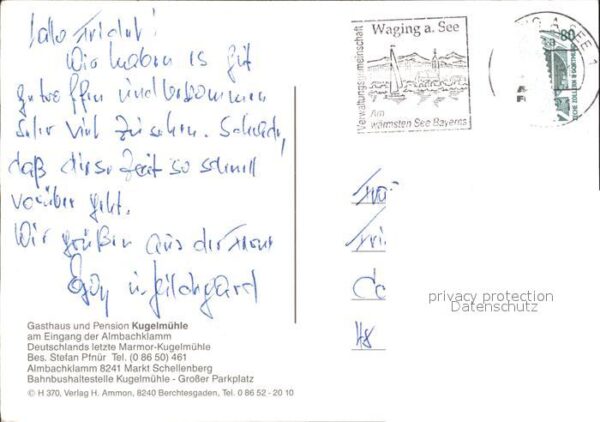 Hallo Fridel!
Wir haben is gut
getroffen und bekommen
sehr viel zu sehen. Schade,
daß diese Zeit so schnell
vorüber geht.
Wir grüßen aus der Ferne
Egon u. Hildegard
Gasthaus und Pension Kugelmühle
am Eingang der Almbachklamm
Deutschlands letzte Marmor-Kugelmühle
Bes. Stefan Pfnür Tel. (0 86 50) 461
Almbachklamm 8241 Markt Schellenberg
Bahnbushaltestelle Kugelmühle - Großer Parkplatz
© H 370, Verlag H. Ammon, 8240 Berchtesgaden, Tel. 0 86 52 - 20 10
Verwaltungsgemeinschaft
Waging a. See
Am
wärmsten See Bayerns
G A SEE 1
80
privacy protection
Datenschutz